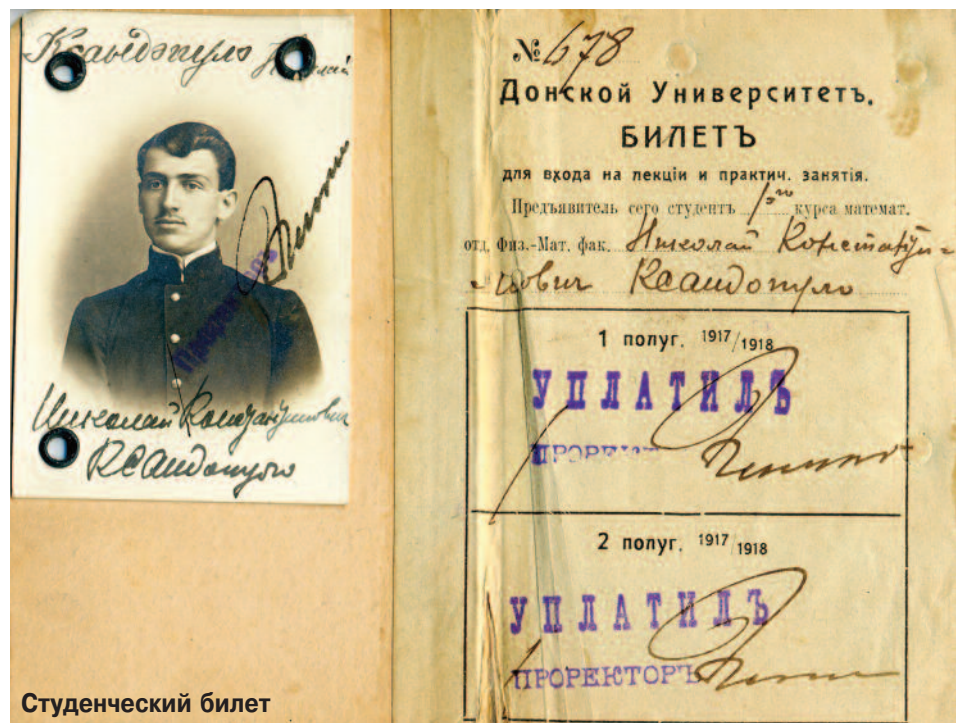 Ксандопуло Николай
Николай Константинович
Ксандопуло
Проректоръ
№ 678
Донской Университетъ.
БИЛЕТЪ
для входа на лекціи и практич. занятія.
Предъявитель сего студентъ 1го курса математ.
отд. Физ.-Мат. фак. Николай Константи-
нович Ксандопуло
1 полуг. 1917/1918
УПЛАТИЛЪ
ПРОРЕКТ
2 полуг. 1917/1918
УПЛАТИЛЪ
ПРОРЕКТОРЪ
Студенческий билет